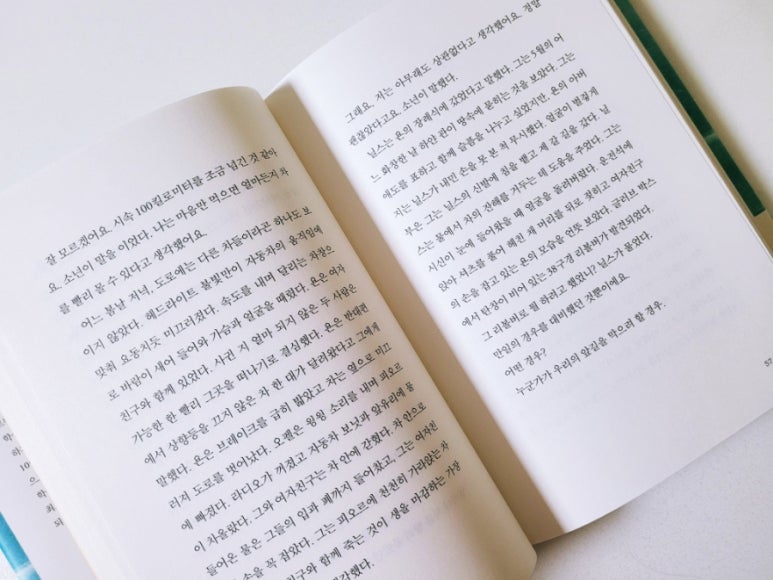 잘 모르겠어요. 시속 100킬로미터를 조금 넘긴 것 같아
요. 소년이 말을 이었다. 나는 마음만 먹으면 얼마든지 차
를 빨리 몰 수 있다고 생각했어요.
어느 봄날 저녁, 도로에는 다른 차들이라곤 하나도 보
이지 않았다. 헤드라이트 불빛만이 자동차의 움직임에
맞춰 요동치듯 미끄러졌다. 속도를 내며 달리는 차창으
로 바람이 새어 들어와 가슴과 얼굴을 때렸다. 욘은 여자
친구와 함께 있었다. 사귄 지 얼마 되지 않은 두 사람은
가능한 한 빨리 그곳을 떠나기로 결심했다. 욘은 반대편
에서 상향등을 끄지 않은 차 한 대가 달려왔다고 그에게
말했다. 욘은 브레이크를 급히 밟았고 차는 옆으로 미끄
러져 도로를 벗어났다. 오펠은 윙윙 소리를 내며 피오르
에 빠졌다. 라디오가 꺼졌고 자동차 보닛과 앞유리에 물
이 차올랐다. 그와 여자친구는 차 안에 갇혔다. 차 안으로
들어온 물은 그들의 입과 폐까지 들어찼고, 그는 여자친
손을 꼭 잡았다. 그는 피오르에 천천히 가라앉는 차
친구와 함께 죽는 것이 생을 마감하는 가장
생각했다.
그래요. 저는 아무래도 상관없다고 생각했어요. 정말
괜찮았다고요. 소년이 말했다.
닐스는 욘의 장례식에 갔었다고 말했다. 그는 5월의 어
느 화창한 날 하얀 관이 땅속에 묻히는 것을 보았다. 그는
애도를 표하고 함께 슬픔을 나누고 싶었지만, 욘의 아버
지는 닐스가 내민 손을 못 본 척 무시했다. 얼굴이 벌겋게
그는 닐스의 신발에 침을 뱉고 제 갈 길을 갔다. 닐
스는 물에서 차의 잔해를 거두는 데 도움을 주었다. 그는
시신이 눈에 들어왔을 때 얼굴을 돌려버렸다. 운전석에
앉아 셔츠를 풀어 헤친 채 머리를 뒤로 젖히고 여자친구
의 손을 잡고 있는 욘의 모습을 언뜻 보았다. 글러브 박스
에서 탄창이 비어 있는 38구경 리볼버가 발견되었다.
그 리볼버로 뭘 하려고 했었니? 닐스가 물었다.
만일의 경우를 대비했던 것뿐이에요.
어떤 경우?
누군가가 우리의 앞길을 막으려 할 경우.
57